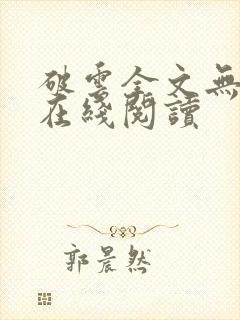 破雲全文無
在綫閱讀
郭晨然